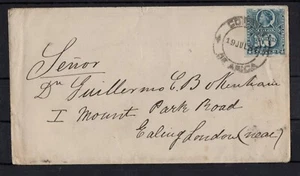 Señor
Dn Guillermo C. Bokenham
1 Mount Park Road
Ealing London (near)
19 JUL
DE ARICA